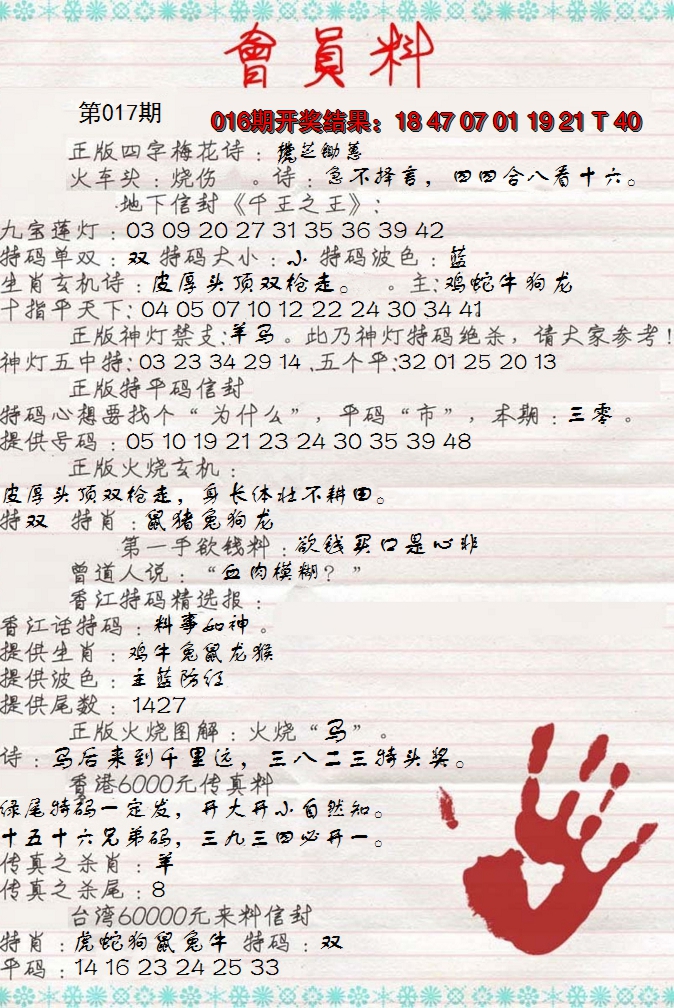 會員料
第017期
016期开奖结果：18 47 07 01 19 21 T 40
正版四字梅花诗：芝锄蕙
火车头：烧伤 。诗：急不择言，四四合八看十六。
地下信封《千王之王》：
九宝莲灯：03 09 20 27 31 35 36 39 42
特码单双：双 特码大小：小 特码波色：蓝
生肖玄机诗：皮厚头顶双枪走。 。主：鸡蛇牛狗龙
十指平天下：04 05 07 10 12 22 24 30 34 41
正版神灯禁支：羊马。此乃神灯特码绝杀，请大家参考！
神灯五中特：03 23 34 29 14 .五个平：32 01 25 20 13
正版特平码信封
特码心想要找个“为什么”，平码“市”，本期：三零。
提供号码：05 10 19 21 23 24 30 35 39 48
正版火烧玄机：
皮厚头顶双枪走，身长体壮不耕田。
特双 特肖：鼠猪兔狗龙
第一手欲钱料：欲钱买口是心非
曾道人说：“血肉模糊？”
香江特码精选报：
香江话特码：料事如神。
提供生肖：鸡牛兔鼠龙猴
提供波色：主蓝防红
提供尾数：1427
正版火烧图解：火烧“马”。
诗：马后来到千里远，三八二三特头奖。
香港6000元传真料
绿尾特码一定发，开大开小自然知。
十五十六兄弟码，三九三四必开一。
传真之杀肖：羊
传真之杀尾：8
台湾60000元来料信封
特肖：虎蛇狗鼠兔牛 特码：双
平码：14 16 23 24 25 33